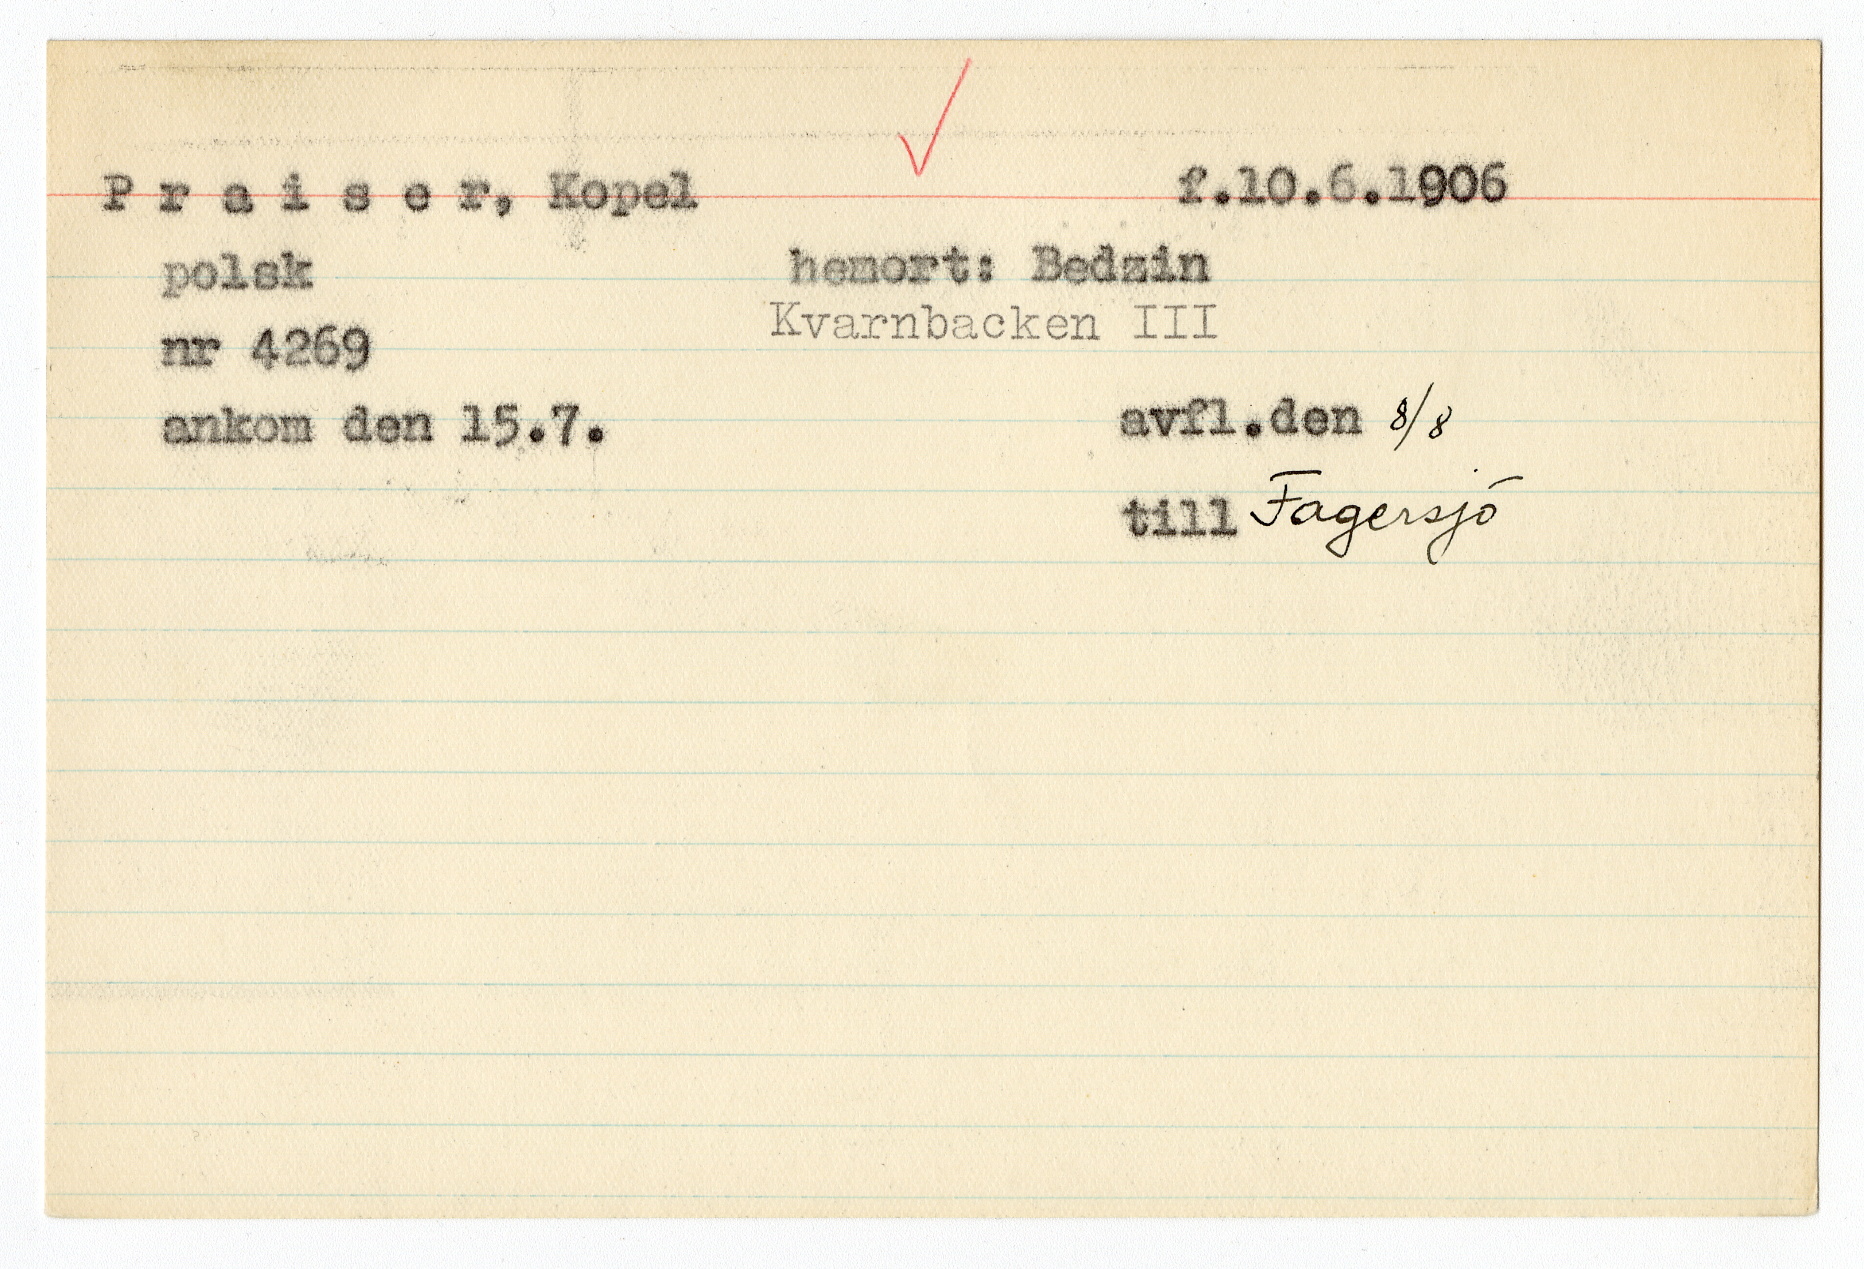 P r a i s e r, Kopel f.10.6.1906
polsk hemort: Bedzin
Kvarnbacken III
nr 4269
ankom den 15.7. avfl.den 8/8
till Fagersjö